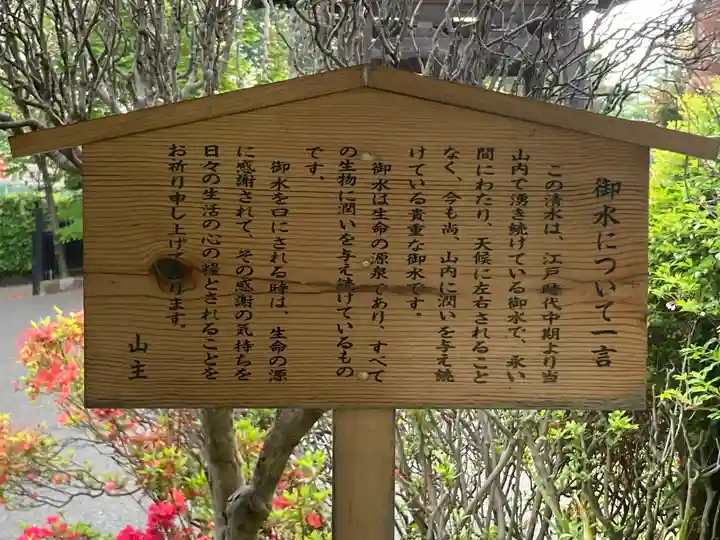 御水について一言
この清水は、江戸時代中期より当
山内で湧き続けている御水で、永い
間にわたり、天候に左右されること
なく、今も尚、山内に潤いを与え続
けている貴重な御水です。
御水は生命の源泉であり、すべて
の生物に潤いを与え続けているもの
です。
御水を口にされる時は、生命の源
に感謝されて、その感謝の気持ちを
日々の生活の心の糧とされることを
お祈り申し上げております。
山主